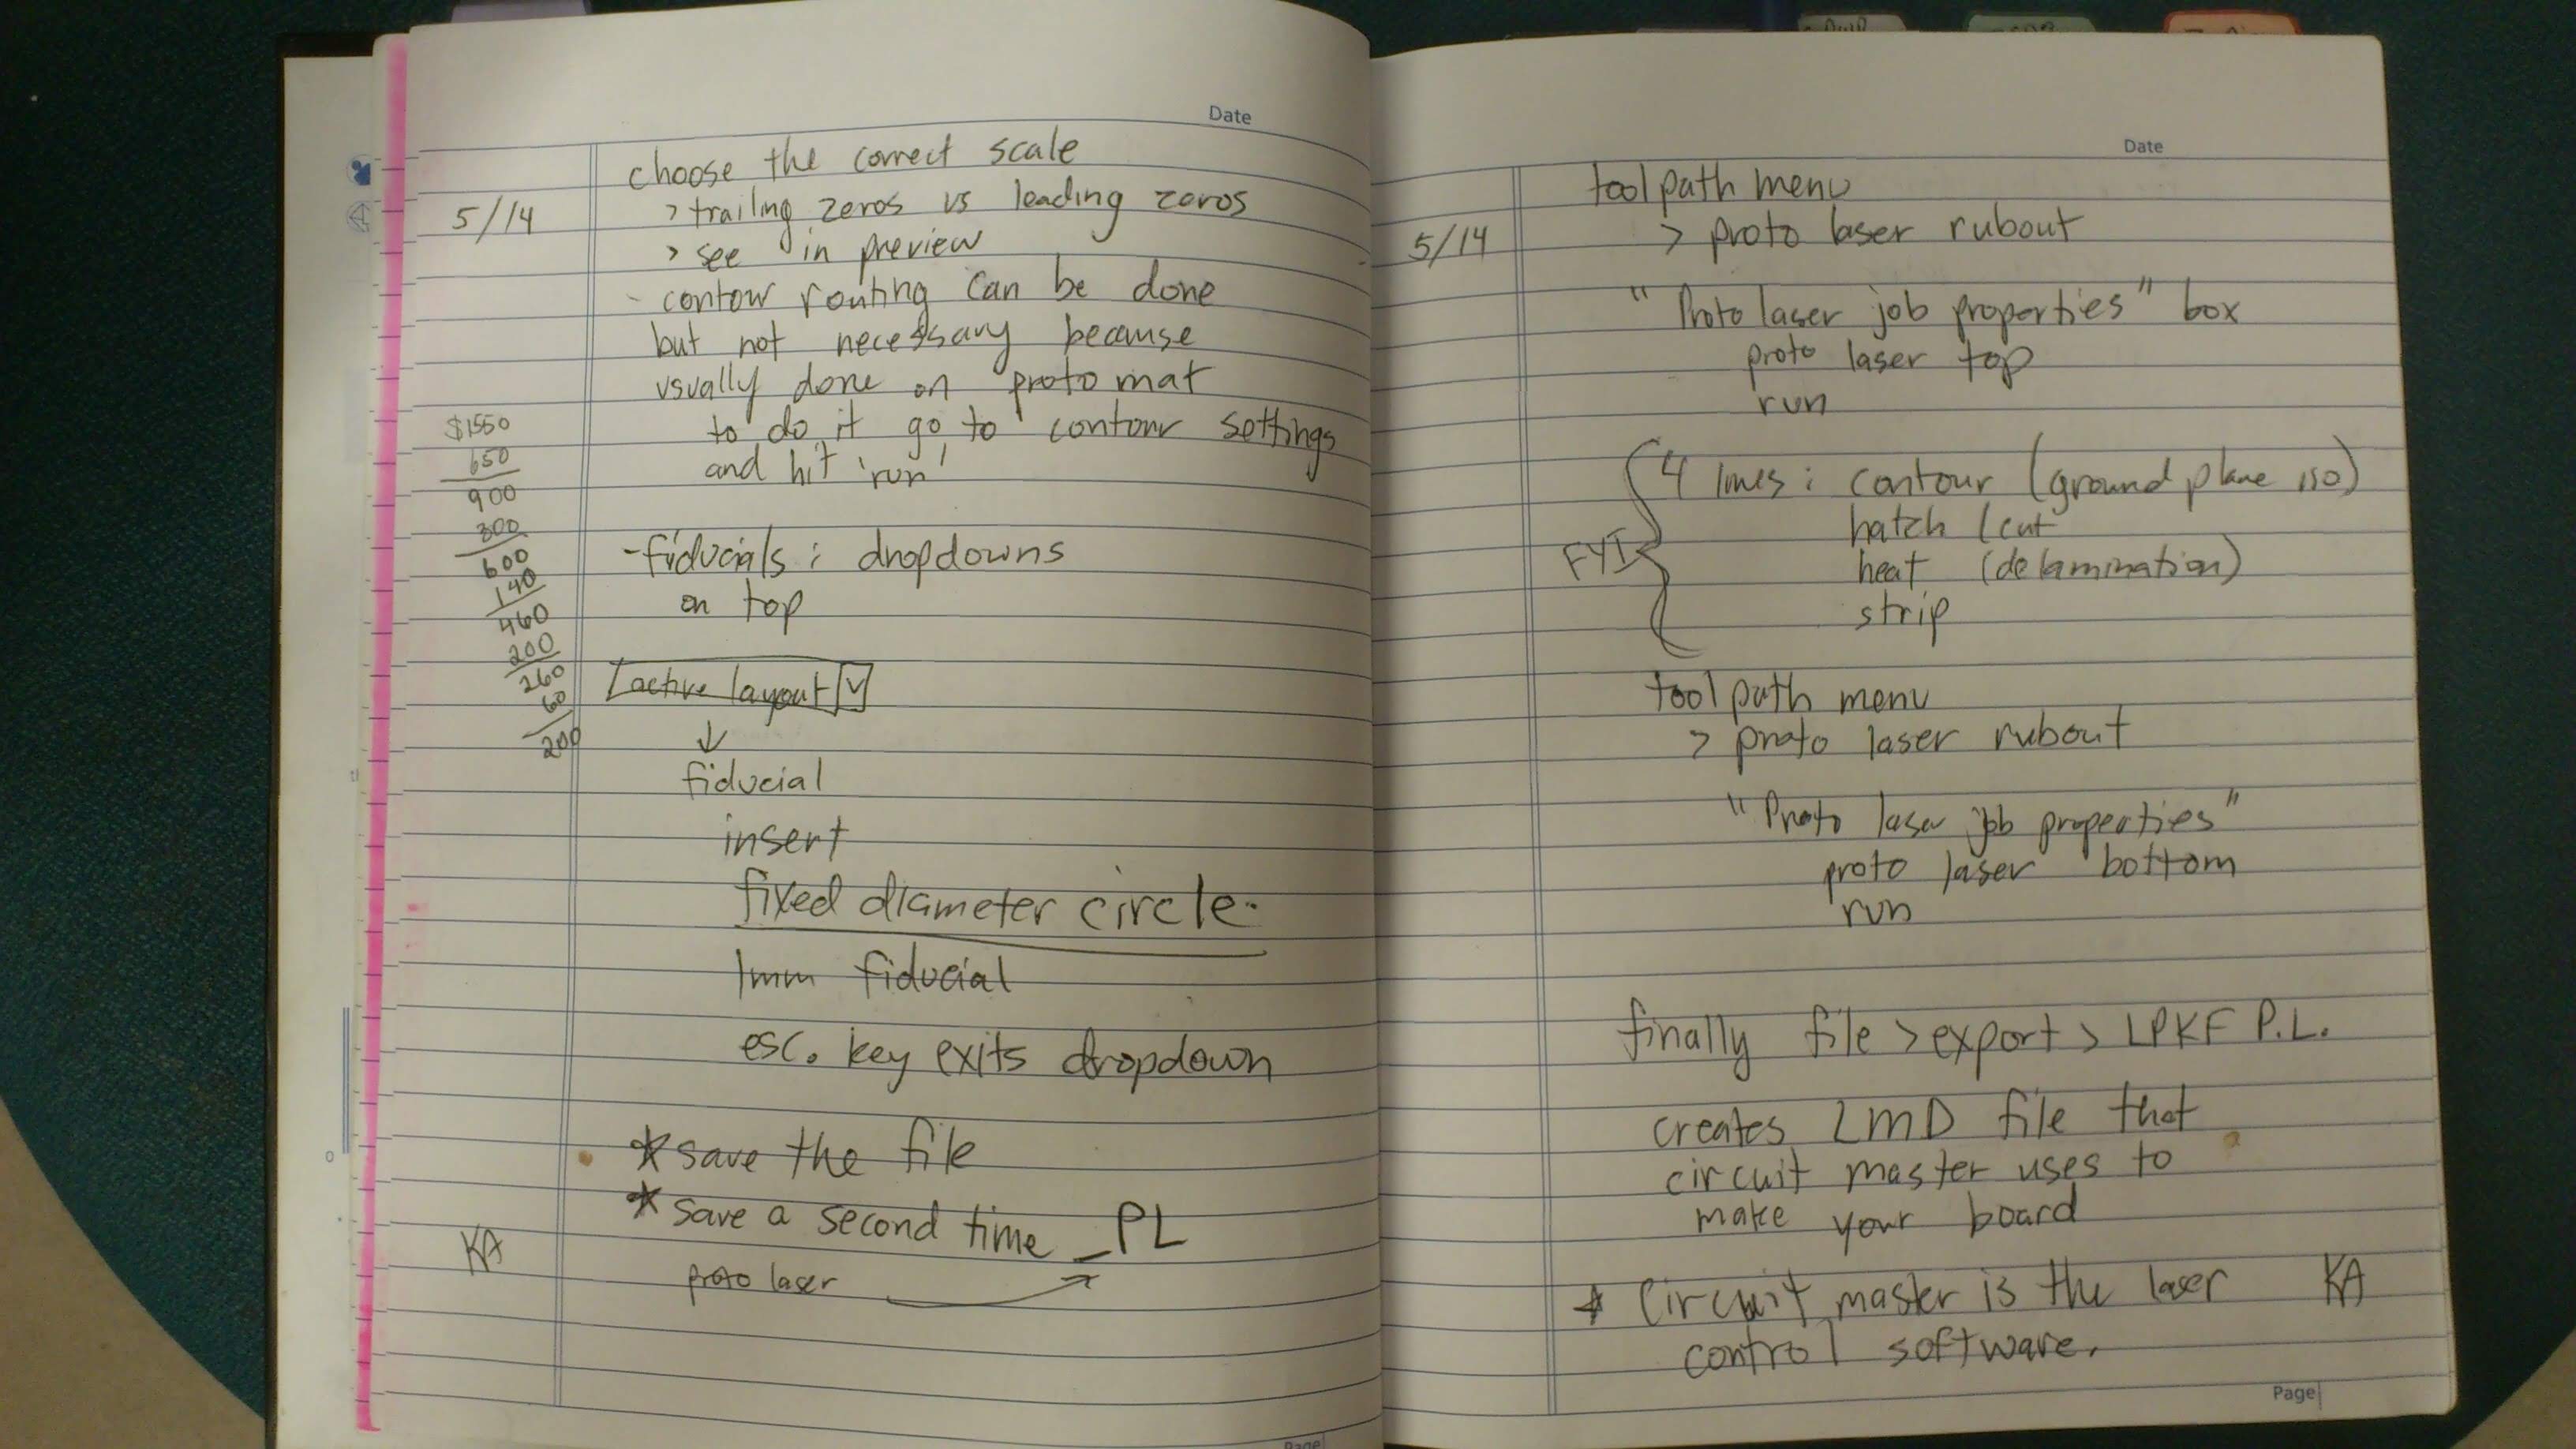 Date
choose the correct scale
5/14
> trailing zeros vs leading zeros
> see in preview
- contour routing can be done
but not necessary because
usually done on protomat
to do it go to contour settings
and hit 'run'
$1550
650
900
300
600
140
460
200
260
60
200
- fiducials : dropdowns
on top
active layout
↓
fiducial
insert
fixed diameter circle.
1mm fiducial
esc. key exits dropdown
* save the file
* save a second time _PL
proto laser
KA
Page
Date
toolpath menu
5/14
> proto laser rubout
"Proto laser job properties" box
proto laser top
run
FYI
4 lines : contour (ground plane iso)
hatch (cut
heat (delamination)
strip
toolpath menu
> proto laser rubout
"Proto laser job properties"
proto laser bottom
run
finally file > export > LPKF P.L.
creates LMD file that
circuit master uses to
make your board
* Circuit master is the laser KA
control software.
Page